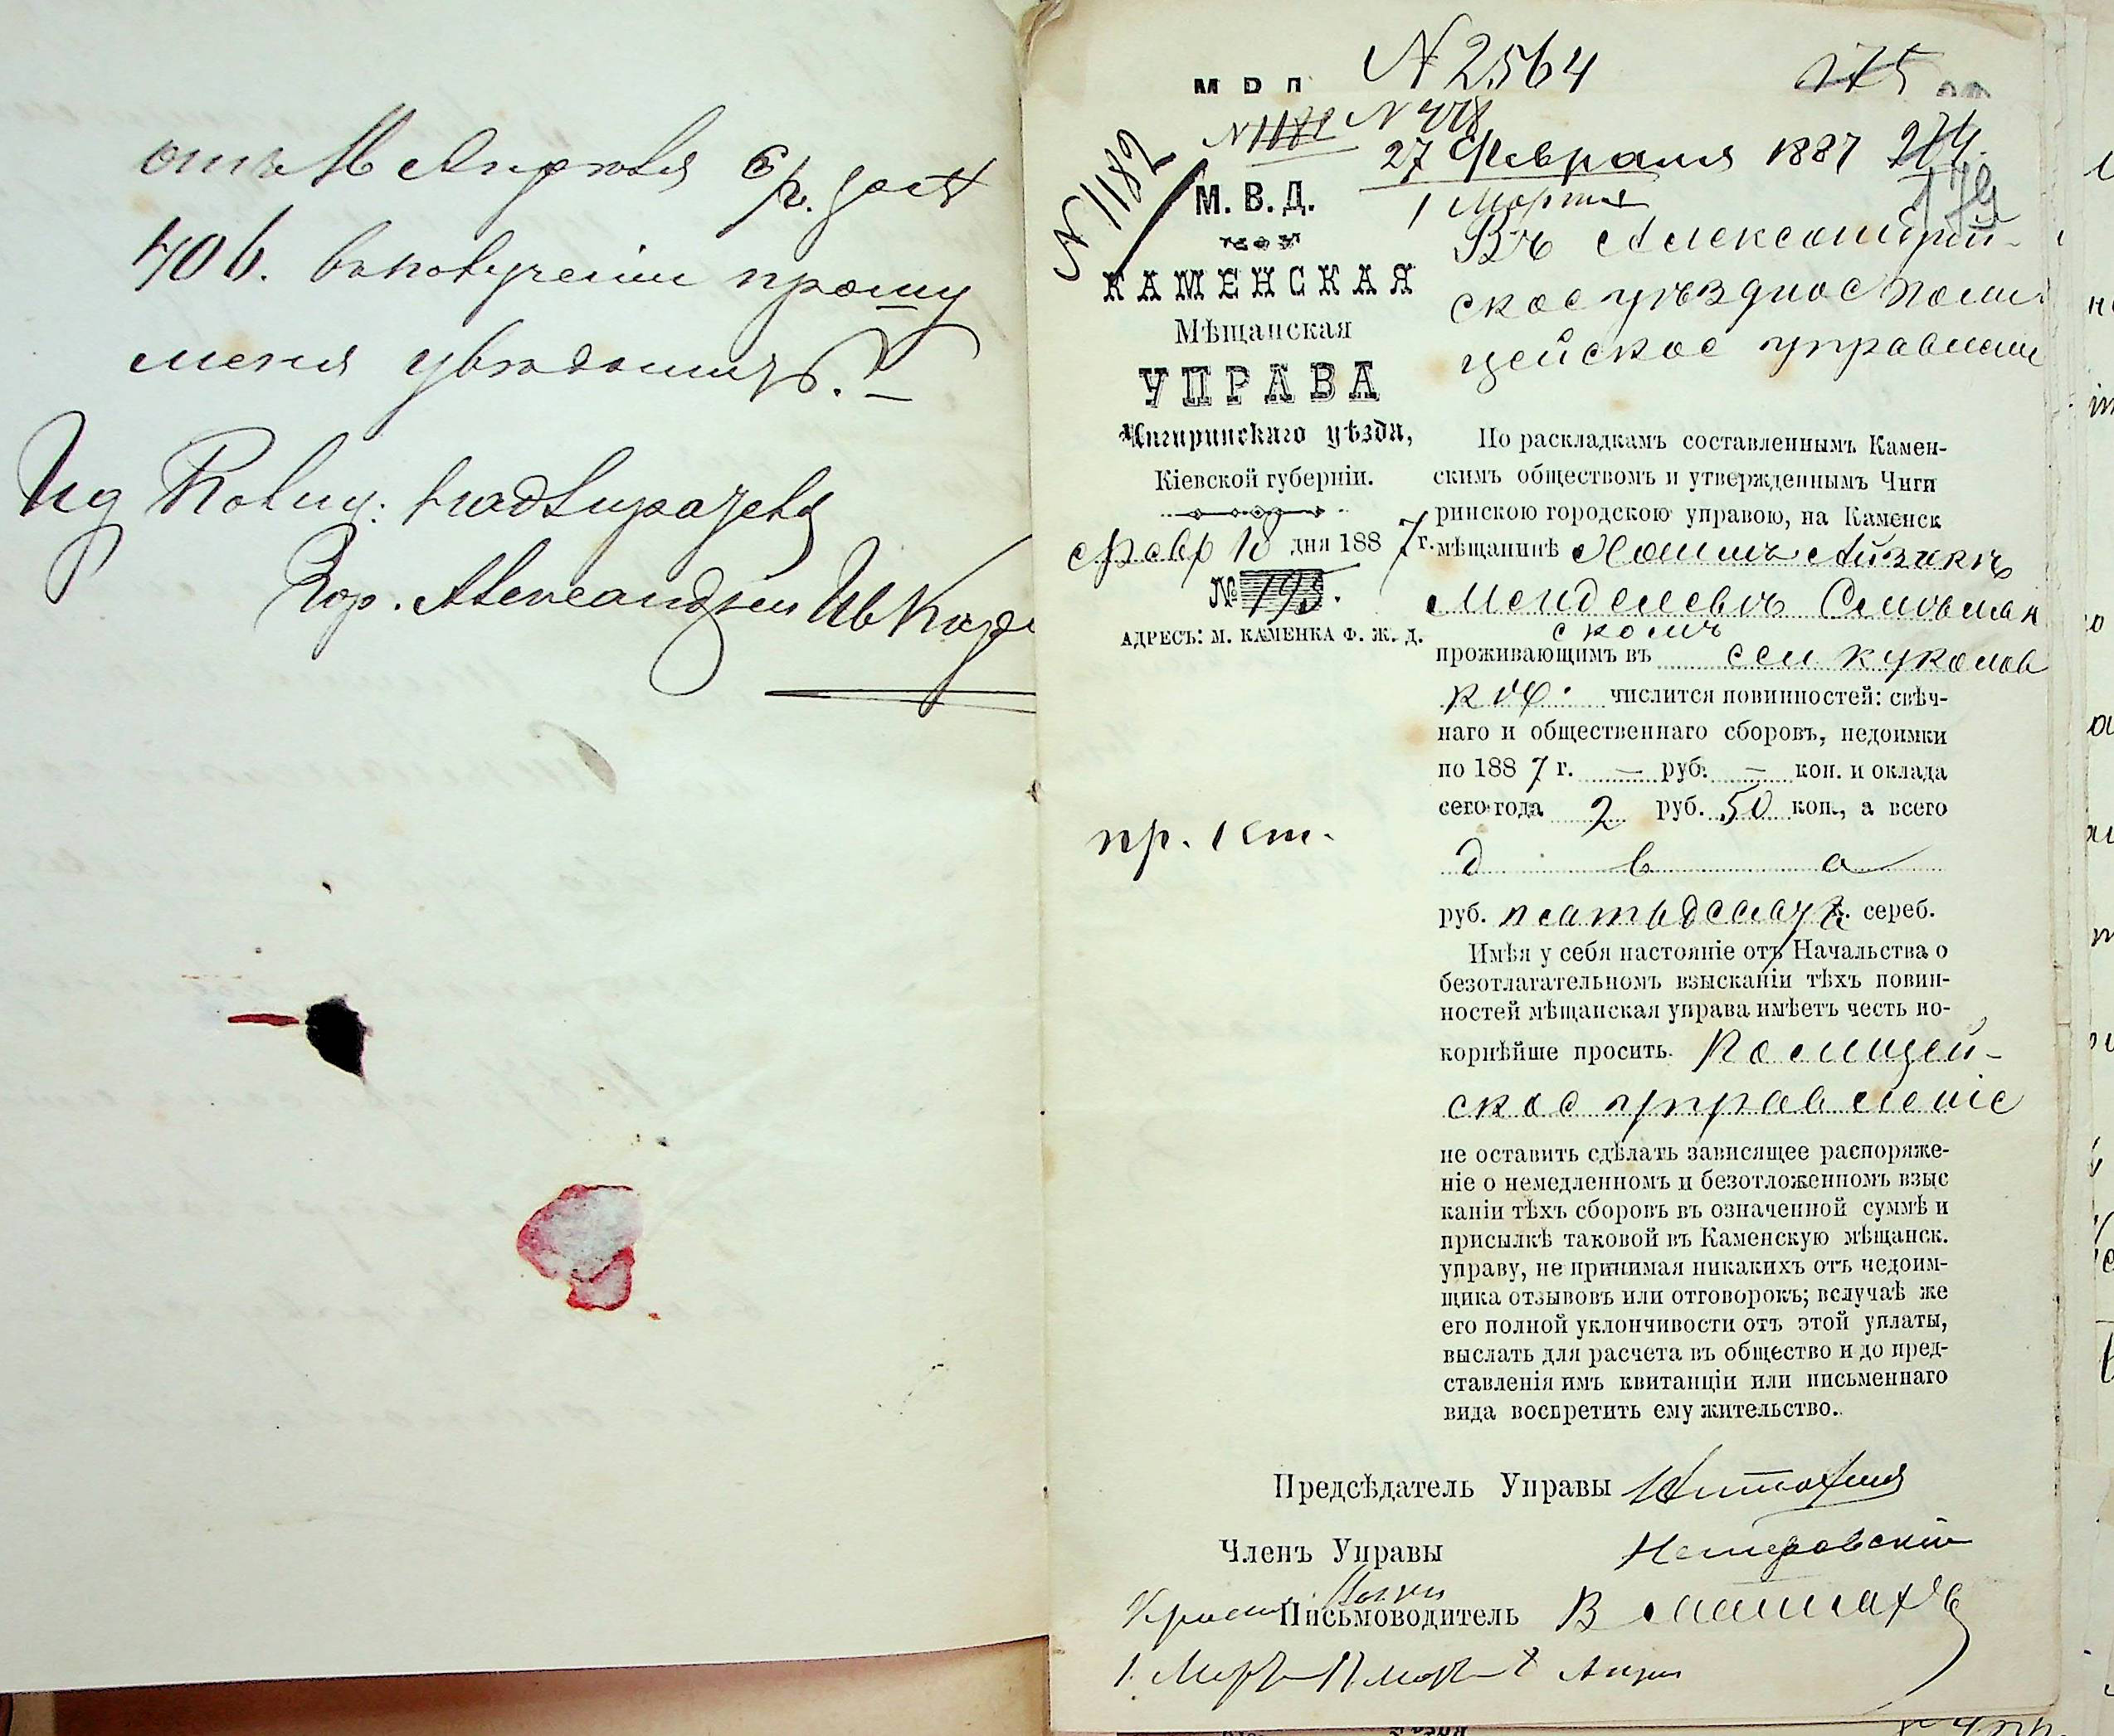 отъ 16 Апрѣля
406. въ полученіи прошу
меня увѣдомить.
Полиц. Надзирателя
Гор. Александріи
№ 2564
275
№ 1182
№ 1182
27 Февраля 1887
274
1 Марта
179
М. В. Д.
КАМЕНСКАЯ
Мѣщанская
УПРАВА
Чигиринскаго уѣзда,
Кіевской губерніи.
Февр 18 дня 1887 г.
№ 195.
АДРЕСЪ: М. КАМЕНКА Ф. Ж. Д.
пр. 1 ст.
Въ Александрій-
ское уѣздное Поли
цейское управленіе
По раскладкамъ составленнымъ Камен-
скимъ обществомъ и утвержденнымъ Чиги
ринскою городскою управою, на Каменск
мѣщанинѣ Хаимъ Айзикъ
Менделевъ Сми
скомъ
проживающимъ въ сел куколов
кѣ. числится повинностей: свѣч-
наго и общественнаго сборовъ, недоимки
по 1887 г. — руб. — коп. и оклада
сего года 2 руб. 50 коп., а всего
два
руб. пятьдесятъ к. сереб.
Имѣя у себя настояніе отъ Начальства о
безотлагательномъ взысканіи тѣхъ повин-
ностей мѣщанская управа имѣетъ честь по-
корнѣйше просить Полицей-
ское управленіе
не оставить сдѣлать зависящее распоряже-
ніе о немедленномъ и безотложенномъ взыс
каніи тѣхъ сборовъ въ означенной суммѣ и
присылкѣ таковой въ Каменскую мѣщанск.
управу, не принимая никакихъ отъ недоим-
щика отзывовъ или отговорокъ; вслучаѣ же
его полной уклончивости отъ этой уплаты,
выслать для расчета въ общество и до пред-
ставленія имъ квитанціи или письменнаго
вида воспретить ему жительство.
Предсѣдатель Управы
Членъ Управы
Письмоводитель В